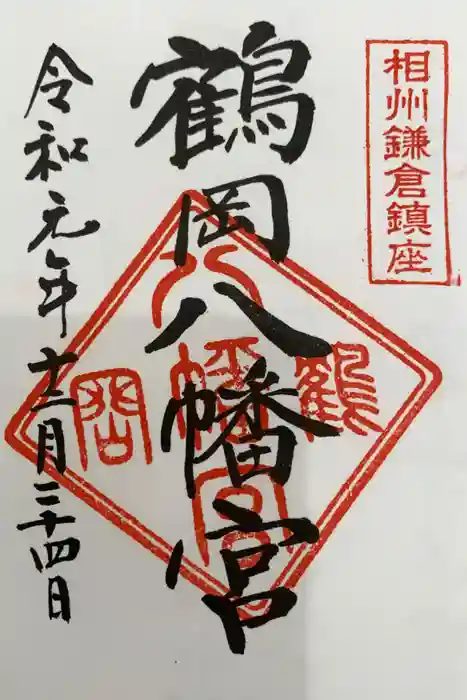 相州鎌倉鎮座
鶴岡八幡宮
鶴
八幡宮
岡
令和元年十二月二十四日